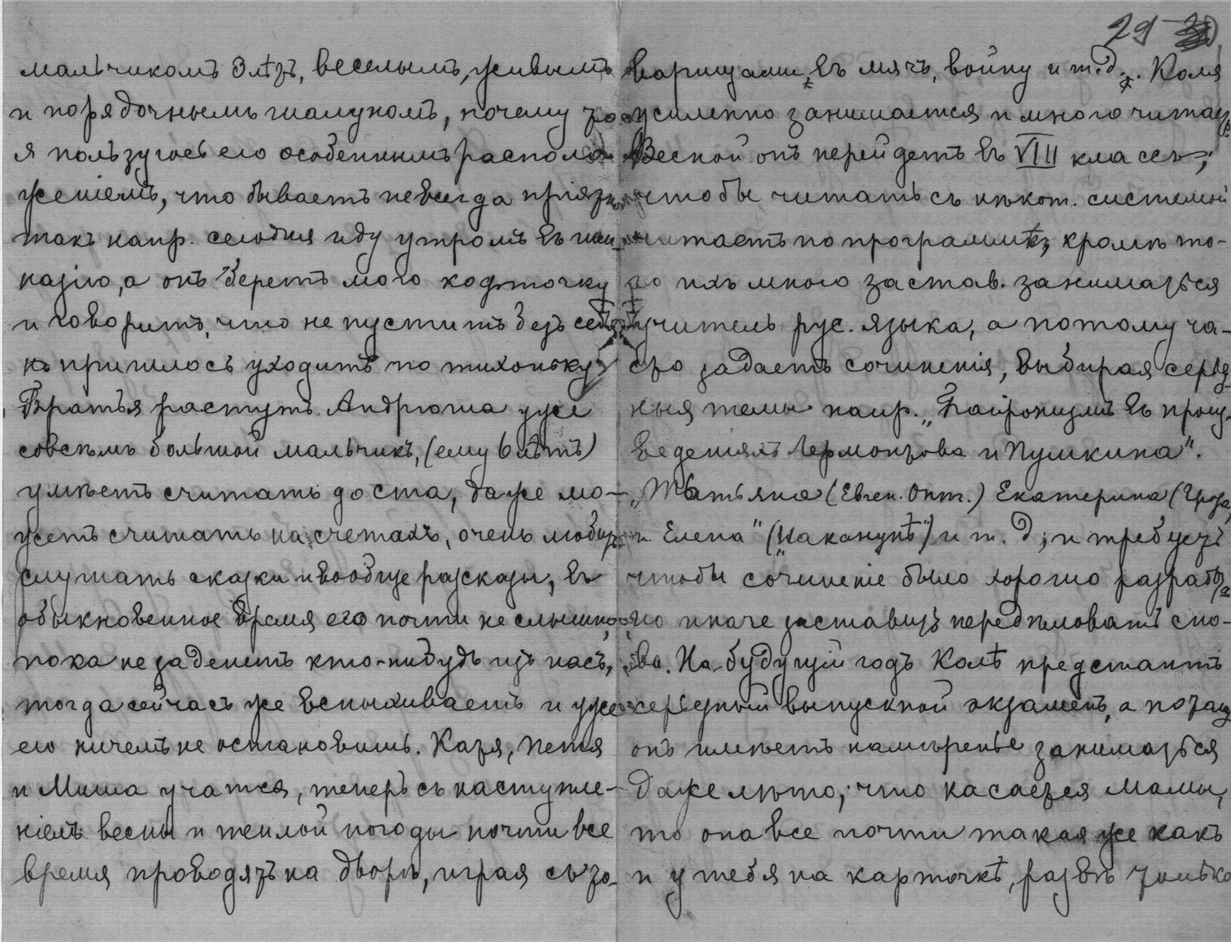 29
мальчикомъ 3 лѣтъ, веселымъ, живымъ
и порядочнымъ шалуномъ, почему то
я пользуюсь его особеннымъ располо-
женіемъ, что бываетъ не всегда пріятн
такъ напр. сегодня иду утромъ въ гим-
назію, а онъ беретъ мого кофточку
и говоритъ, что не пуститъ безъ себя
къ пришлось уходить по тихоньку
Братья растутъ. Андрюша уже
совсѣмъ большой мальчикъ, (ему 6 лѣтъ)
умѣетъ считать до ста, даже мо-
жетъ считать на счетахъ, очень любитъ
слушать сказки и вообще разсказы, въ
обыкновенное время его почти не слышно
пока не заденетъ кто-нибудь изъ насъ,
тогда сейчасъ же вспыхиваетъ и уже
его ничемъ не остановишь. Катя, Петя
и Миша учатся, теперь съ наступле-
ніемъ весны и теплой погоды почти все
время проводятъ на дворѣ, играя съ то-
варищами въ мячъ, войну и т.д. Коля
усиленно занимается и много читаетъ
Весной онъ перейдетъ въ VIII классъ;
чтобы читать съ нѣкот. системой
читаетъ по программѣ, кромѣ то-
го ихъ много застав. заниматься
учитель рус. языка, а потому ча-
сто задаетъ сочиненія, выбирая серьез
ныя темы напр. „Байронизмъ въ произ-
веденіяхъ Лермонтова и Пушкина".
„Татьяна (Евген. Онѣг.) Екатерина (Гроза
и Елена" („Наканунѣ") и т. д; и требуетъ
чтобы сочиненіе было хорошо разрабо
но иначе заставитъ передѣловать сно-
ва. На будущій годъ Колѣ предстаитъ
выпускной экзаменъ, а потому
онъ имѣетъ намѣренье заниматься
даже лѣто; что касается мамы,
то она все почти такая же какъ
и у тебя на карточкѣ, развѣ только